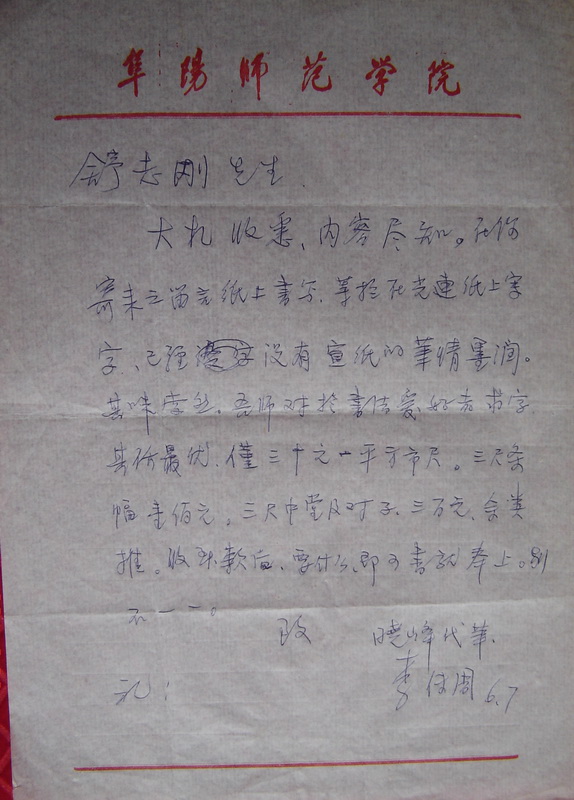 阜阳师范学院
舒志刚先生.
大札收悉、内容尽知。在你
寄来之留言纸上書写、等於在光連纸上写
字、已经没有宣纸的筆情墨润。
其味索然.吾师对於書法爱好者求字
其价最优.僅三十元一平方市尺。三尺条
幅壹佰元。三尺中堂及对子.三百元.余类
推。收到款后、要什么、即可書就奉上。别
不一一。
致
晓峰代筆.
礼!
李 周 6.7